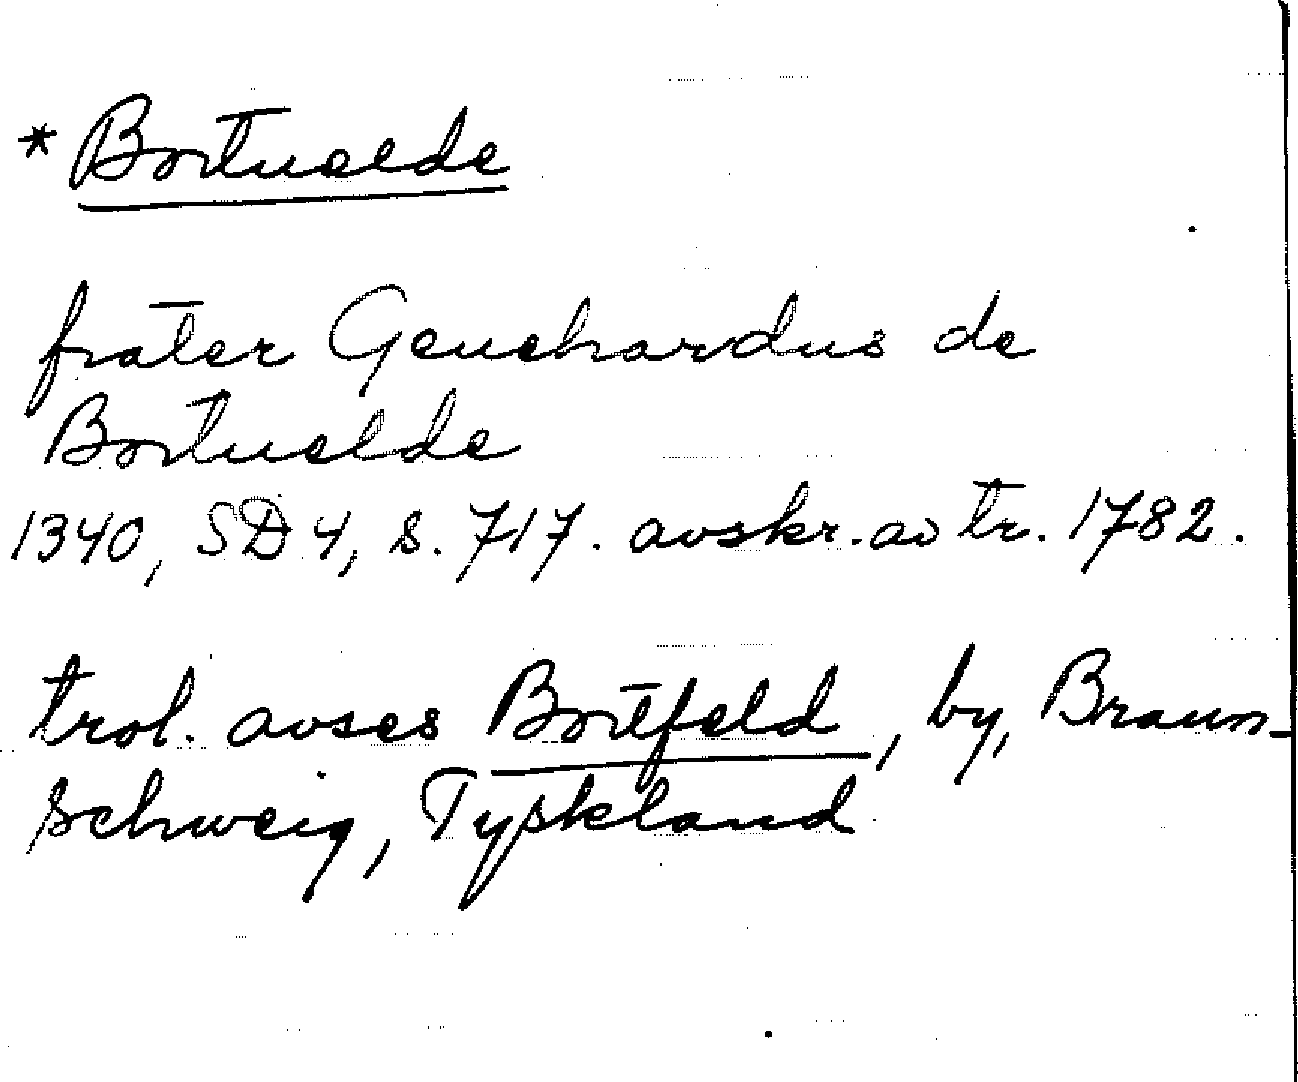 * Bortuelde
frater Geuehardus de
Bortuelde
1340, SD 4, s. 717. avskr. av tr. 1782.
trol. avses Bortfeld, by, Braun-
schweig, Tyskland